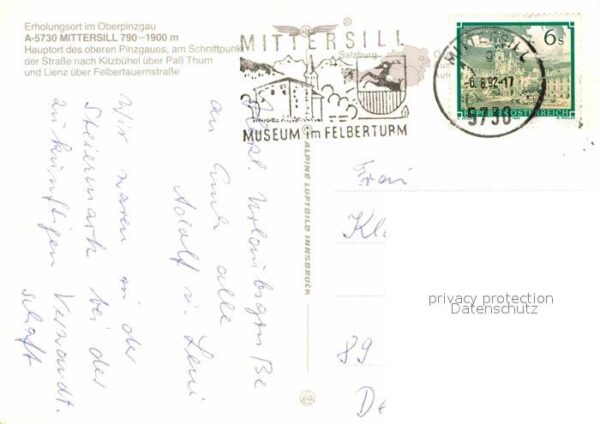 Erholungsort im Oberpinzgau
A-5730 MITTERSILL 790–1900 m
Hauptort des oberen Pinzgaues, am Schnittpunkt
der Straße nach Kitzbühel über Paß Thurn
und Lienz über Felbertauernstraße
MITTERSILL
Salzburg
MUSEUM im FELBERTURM
MITTERSILL
-6.8.92-17
5730
6 S
REPUBLIK ÖSTERREICH
ALPINE LUFTBILD INNSBRUCK
Herzl. Urlaubsgrüße
an Euch alle
Adolf u. Leni
Wir waren in der
Steiermark bei der
zukünftigen Verwandt-
schaft
Frau
Kl
89
De
privacy protection
Datenschutz